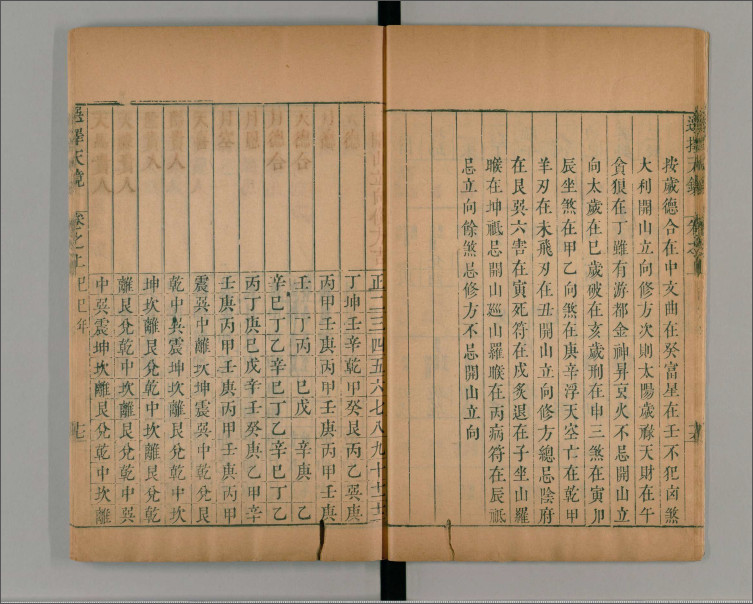 按歲德合在中文曲在癸富星在壬不犯囪煞
大利開山立向修方次則太陽歲祿天財在午
貪狼在丁雖有游都金神昇𤣥火不忌開山立
向太歲在巳歲破在亥歲刑在申三煞在寅卯
辰坐煞在甲乙向煞在庚辛浮天空亡在乾甲
羊刃在未飛刃在丑開山立向修方總忌陰府
在艮巽六害在寅死符在戌炙退在子坐山羅
睺在坤祇忌開山廵山羅睺在丙病符在辰祇
忌立向餘煞忌修方不忌開山立向
正二三四五六七八九十十一十二
丁坤壬辛乾甲癸艮丙乙巽庚
丙甲壬庚丙甲壬庚丙甲壬庚
天德合 壬丁丙 己戊 辛庚 乙
月德合 辛巳丁乙辛巳丁乙辛巳丁乙
丙丁庚巳戊辛壬癸庚乙甲辛
月空 壬庚丙甲壬庚丙甲壬庚丙甲
震巽中離坎坤震巽中乾兌艮
乾中巽震坤坎離艮兌乾中坎
坤坎離艮兌乾中坎離艮兌乾
離艮兌乾中坎離艮兌乾中巽
中巽震坤坎離艮兌乾中坎離
選擇天鏡 卷之十 巳巳年 七